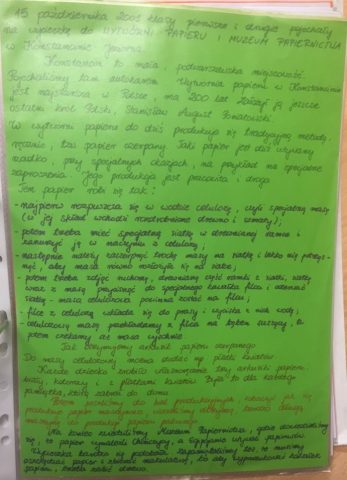 15 października 200 klasy pierwsze i drugie pojechały
na wycieczkę do WYTWÓRNI PAPIERU I MUZEUM PAPIERNICTWA
w Konstancinie Jeziorna.
Konstancin to mała, podwarszawska miejscowość.
Pojechaliśmy tam autokarem. Wytwórnia papieru w Konstancinie
jest najstarsza w Polsce, ma 200 lat. Założył ją jeszcze
ostatni król Polski, Stanisław August Poniatowski.
W wytwórni papieru do dziś produkuje się tradycyjną metodą,
ręcznie, tzw. papier czerpany. Taki papier jest dziś używany
rzadko, przy specjalnych okazjach, na przykład na specjalne
zaproszenia. Jego produkcja jest pracowita i droga.
Ten papier robi się tak:
- najpierw rozpuszcza się w wodzie celulozę, czyli specjalną masę
(w jej skład wchodzi rozdrobnione drewno i szmaty);
- potem trzeba mieć specjalną siatkę w drewnianej ramce i
zanurzyć ją w naczyniu z celulozą;
- następnie należy zaczerpnąć trochę masy na siatkę i lekko nią
aby masa równo rozłożyła się na siatce;
- potem trzeba zdjąć drewnianą część ramki z siatki, siatkę
wraz z masą przycisnąć do specjalnego kawałka filcu i oderwać
siatkę - masa celulozowa powinna zostać na filcu;
- filc z celulozą wkłada się do prasy i wyciska z niej wodę;
- celulozową masę przekładamy z filcu na suszącą, a
potem czekamy aż masa wyschnie.
Tak otrzymujemy arkusz papieru czerpanego.
Do masy celulozowej można dodać np. płatki kwiatów.
Każde dziecko zrobiło własnoręcznie trzy arkusiki papieru:
biały, kolorowy i z płatkami kwiatów. Była to dla każdego
pamiątka, którą zabrał do domu.
Potem poszliśmy do hal produkcyjnych zobaczyć jak się
produkuje papier maszynowo.
maszynę do produkcji papieru
Na koniec zwiedziliśmy Muzeum Papiernictwa, gdzie dowiedzieliśmy
się, że papier wynaleźli Chińczycy, a Egipcjanie używali papirusów.
Wycieczka bardzo się podobała. Zapamiętaliśmy też, że musimy
oszczędzać papier i zbierać makulaturę, bo aby wyprodukować kawałek
papieru, trzeba zabić drzewo.